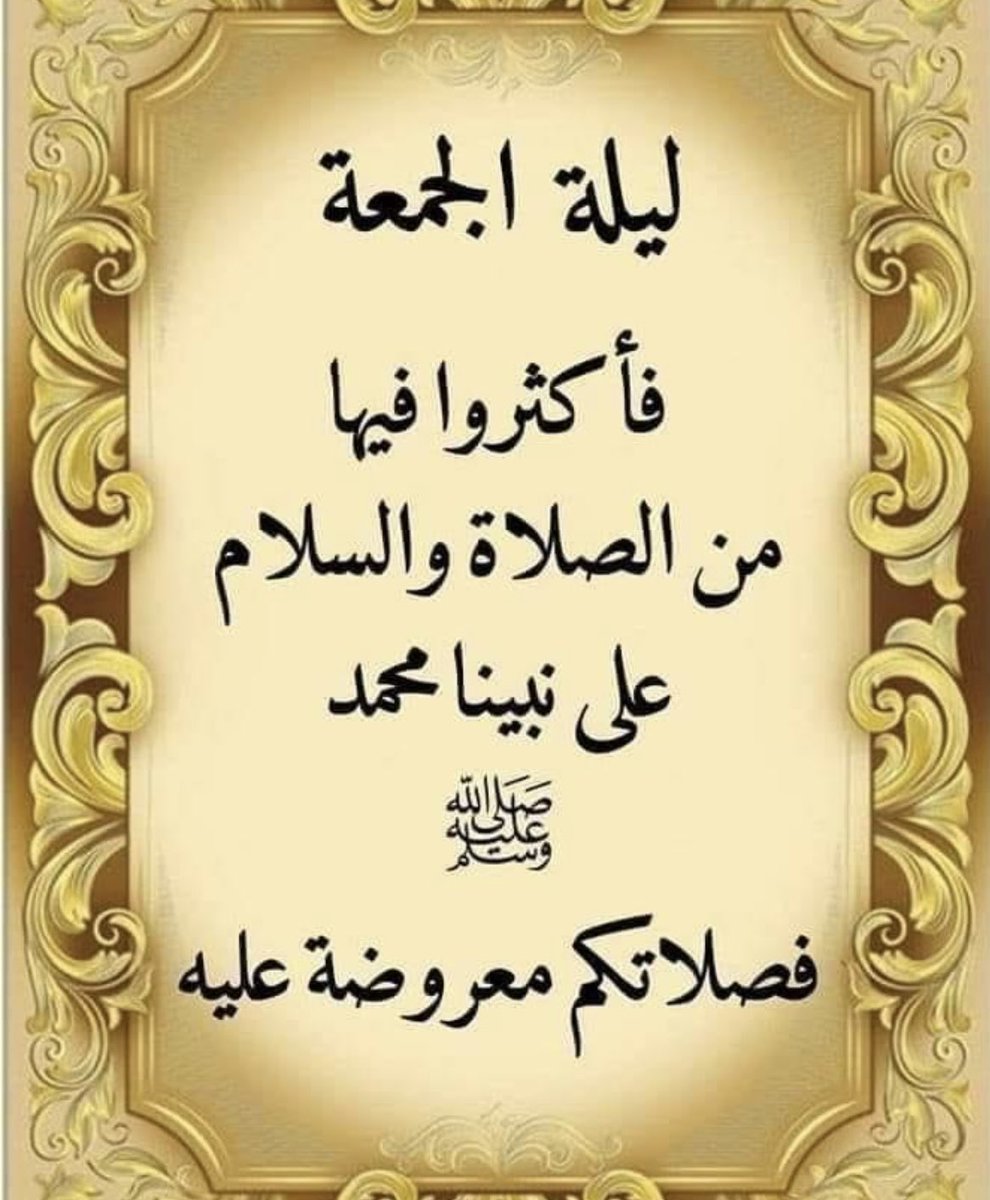 ليلة الجمعة
فأكثروا فيها
من الصلاة والسلام
على نبينا محمد
صَلَّى اللَّه عليه وسلم
فصلاتكم معروضة عليه